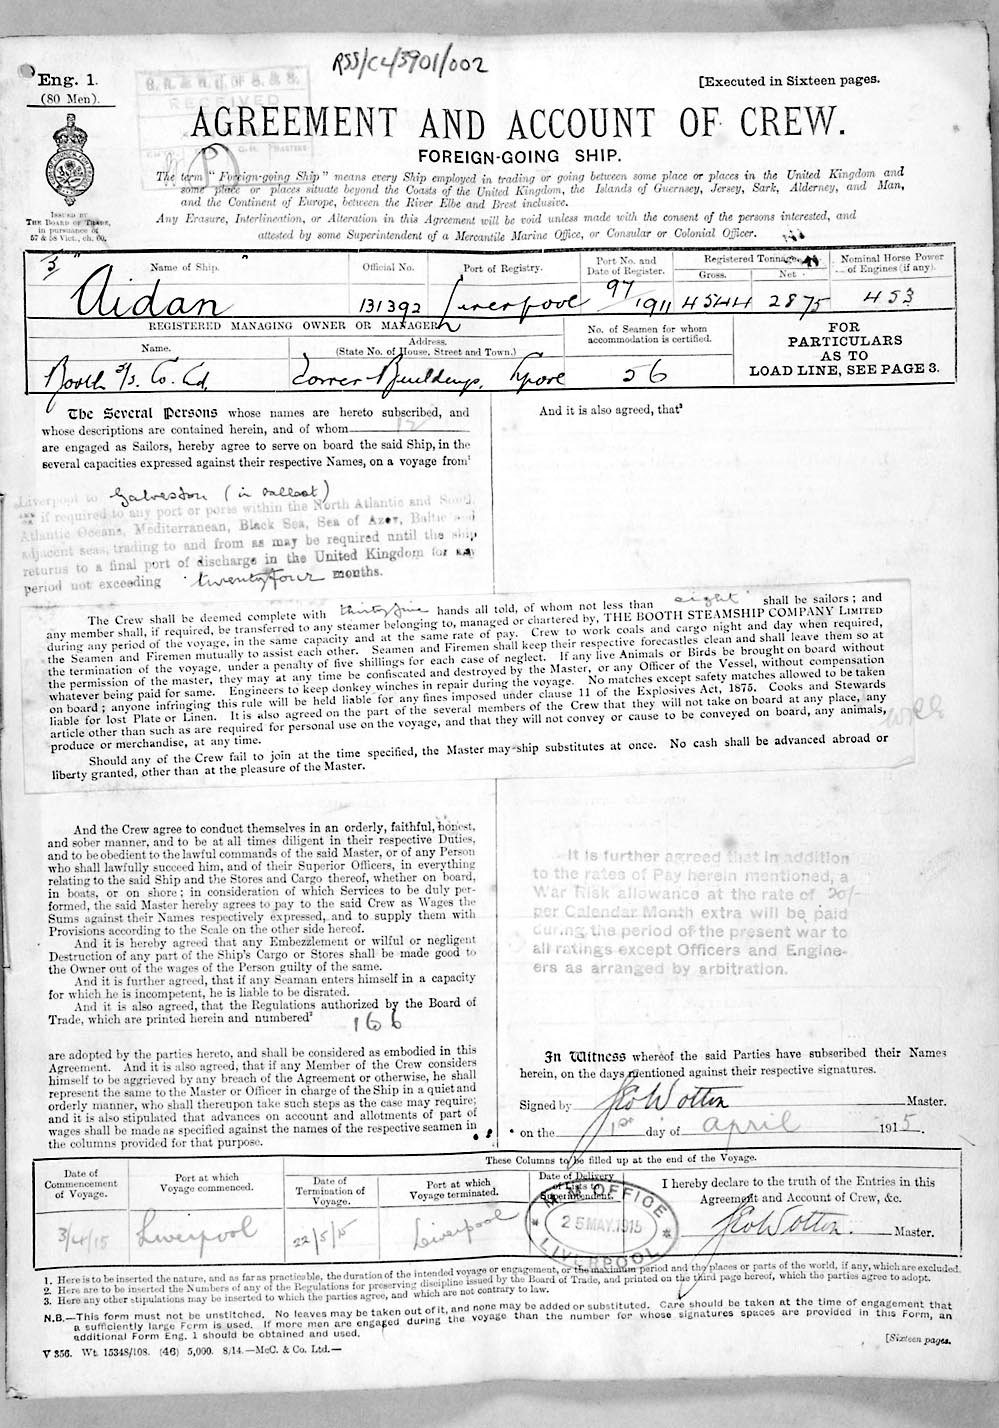 RSS/CL/3901/002
Eng. 1.
(80 Men).
[Executed in Sixteen pages.
RECEIVED
AGREEMENT AND ACCOUNT OF CREW.
FOREIGN-GOING SHIP.
ISSUED BY
THE BOARD OF TRADE,
in pursuance of
57 & 58 Vict., ch. 60.
The term "Foreign-going Ship" means every Ship employed in trading or going between some place or places in the United Kingdom and
some place or places situate beyond the Coasts of the United Kingdom, the Islands of Guernsey, Jersey, Sark, Alderney, and Man,
and the Continent of Europe, between the River Elbe and Brest inclusive.
Any Erasure, Interlineation, or Alteration in this Agreement will be void unless made with the consent of the persons interested, and
attested by some Superintendent of a Mercantile Marine Office, or Consular or Colonial Officer.
Name of Ship. Official No. Port of Registry. Port No. and Date of Register. Registered Tonnage. Gross. Net. Nominal Horse Power of Engines (if any).
"Aidan" 131392 Liverpool 97/1911 4544 2875 453
REGISTERED MANAGING OWNER OR MANAGER
Name. Address. (State No. of House, Street and Town.) No. of Seamen for whom accommodation is certified.
FOR PARTICULARS AS TO LOAD LINE, SEE PAGE 3.
Booth S/s. Co. Ld. Tower Buildings, Lpool 56
The Several Persons whose names are hereto subscribed, and
whose descriptions are contained herein, and of whom 12
are engaged as Sailors, hereby agree to serve on board the said Ship, in the
several capacities expressed against their respective Names, on a voyage from¹
Liverpool to Galveston (in ballast)
if required to any port or ports within the North Atlantic and South
Atlantic Oceans, Mediterranean, Black Sea, Sea of Azov, Baltic and
adjacent seas, trading to and from as may be required until the ship
returns to a final port of discharge in the United Kingdom for any
period not exceeding twenty four months.
And it is also agreed, that³
The Crew shall be deemed complete with thirty five hands all told, of whom not less than eight shall be sailors; and
any member shall, if required, be transferred to any steamer belonging to, managed or chartered by, THE BOOTH STEAMSHIP COMPANY LIMITED
during any period of the voyage, in the same capacity and at the same rate of pay. Crew to work coals and cargo night and day when required,
the Seamen and Firemen mutually to assist each other. Seamen and Firemen shall keep their respective forecastles clean and shall leave them so at
the termination of the voyage, under a penalty of five shillings for each case of neglect. If any live Animals or Birds be brought on board without
the permission of the master, they may at any time be confiscated and destroyed by the Master, or any Officer of the Vessel, without compensation
whatever being paid for same. Engineers to keep donkey winches in repair during the voyage. No matches except safety matches allowed to be taken
on board; anyone infringing this rule will be held liable for any fines imposed under clause 11 of the Explosives Act, 1875. Cooks and Stewards
liable for lost Plate or Linen. It is also agreed on the part of the several members of the Crew that they will not take on board at any place, any
article other than such as are required for personal use on the voyage, and that they will not convey or cause to be conveyed on board, any animals,
produce or merchandise, at any time.
Should any of the Crew fail to join at the time specified, the Master may ship substitutes at once. No cash shall be advanced abroad or
liberty granted, other than at the pleasure of the Master.
And the Crew agree to conduct themselves in an orderly, faithful, honest,
and sober manner, and to be at all times diligent in their respective Duties,
and to be obedient to the lawful commands of the said Master, or of any Person
who shall lawfully succeed him, and of their Superior Officers, in everything
relating to the said Ship and the Stores and Cargo thereof, whether on board,
in boats, or on shore; in consideration of which Services to be duly per-
formed, the said Master hereby agrees to pay to the said Crew as Wages the
Sums against their Names respectively expressed, and to supply them with
Provisions according to the Scale on the other side hereof.
And it is hereby agreed that any Embezzlement or wilful or negligent
Destruction of any part of the Ship's Cargo or Stores shall be made good to
the Owner out of the wages of the Person guilty of the same.
And it is further agreed, that if any Seaman enters himself in a capacity
for which he is incompetent, he is liable to be disrated.
And it is also agreed, that the Regulations authorized by the Board of
Trade, which are printed herein and numbered²
166
are adopted by the parties hereto, and shall be considered as embodied in this
Agreement. And it is also agreed, that if any Member of the Crew considers
himself to be aggrieved by any breach of the Agreement or otherwise, he shall
represent the same to the Master or Officer in charge of the Ship in a quiet and
orderly manner, who shall thereupon take such steps as the case may require;
and it is also stipulated that advances on account and allotments of part of
wages shall be made as specified against the names of the respective seamen in
the columns provided for that purpose.
It is further agreed that in addition
to the rates of Pay herein mentioned, a
War Risk allowance at the rate of 20/-
per Calendar Month extra will be paid
during the period of the present war to
all ratings except Officers and Engine-
ers as arranged by arbitration.
In Witness whereof the said Parties have subscribed their Names
herein, on the days mentioned against their respective signatures.
Signed by Geo Wotton Master.
on the 1st day of April 1915.
These Columns to be filled up at the end of the Voyage.
Date of Commencement of Voyage. Port at which Voyage commenced. Date of Termination of Voyage. Port at which Voyage terminated. Date of Delivery of Lists to Superintendent.
I hereby declare to the truth of the Entries in this
Agreement and Account of Crew, &c.
3/4/15 Liverpool 22/5/15 Liverpool
M.M. OFFICE
25 MAY.1915
LIVERPOOL
Geo Wotton. Master.
1. Here is to be inserted the nature, and as far as practicable, the duration of the intended voyage or engagement, or the maximum period and the places or parts of the world, if any, which are excluded.
2. Here are to be inserted the Numbers of any of the Regulations for preserving discipline issued by the Board of Trade, and printed on the third page hereof, which the parties agree to adopt.
3. Here any other stipulations may be inserted to which the parties agree, and which are not contrary to law.
N.B.—This form must not be unstitched. No leaves may be taken out of it, and none may be added or substituted. Care should be taken at the time of engagement that
a sufficiently large Form is used. If more men are engaged during the voyage than the number for whose signatures spaces are provided in this Form, an
additional Form Eng. 1 should be obtained and used.
[Sixteen pages.
V 356. Wt. 15348/108. (46) 5,000. 8/14.—McC. & Co. Ltd.—